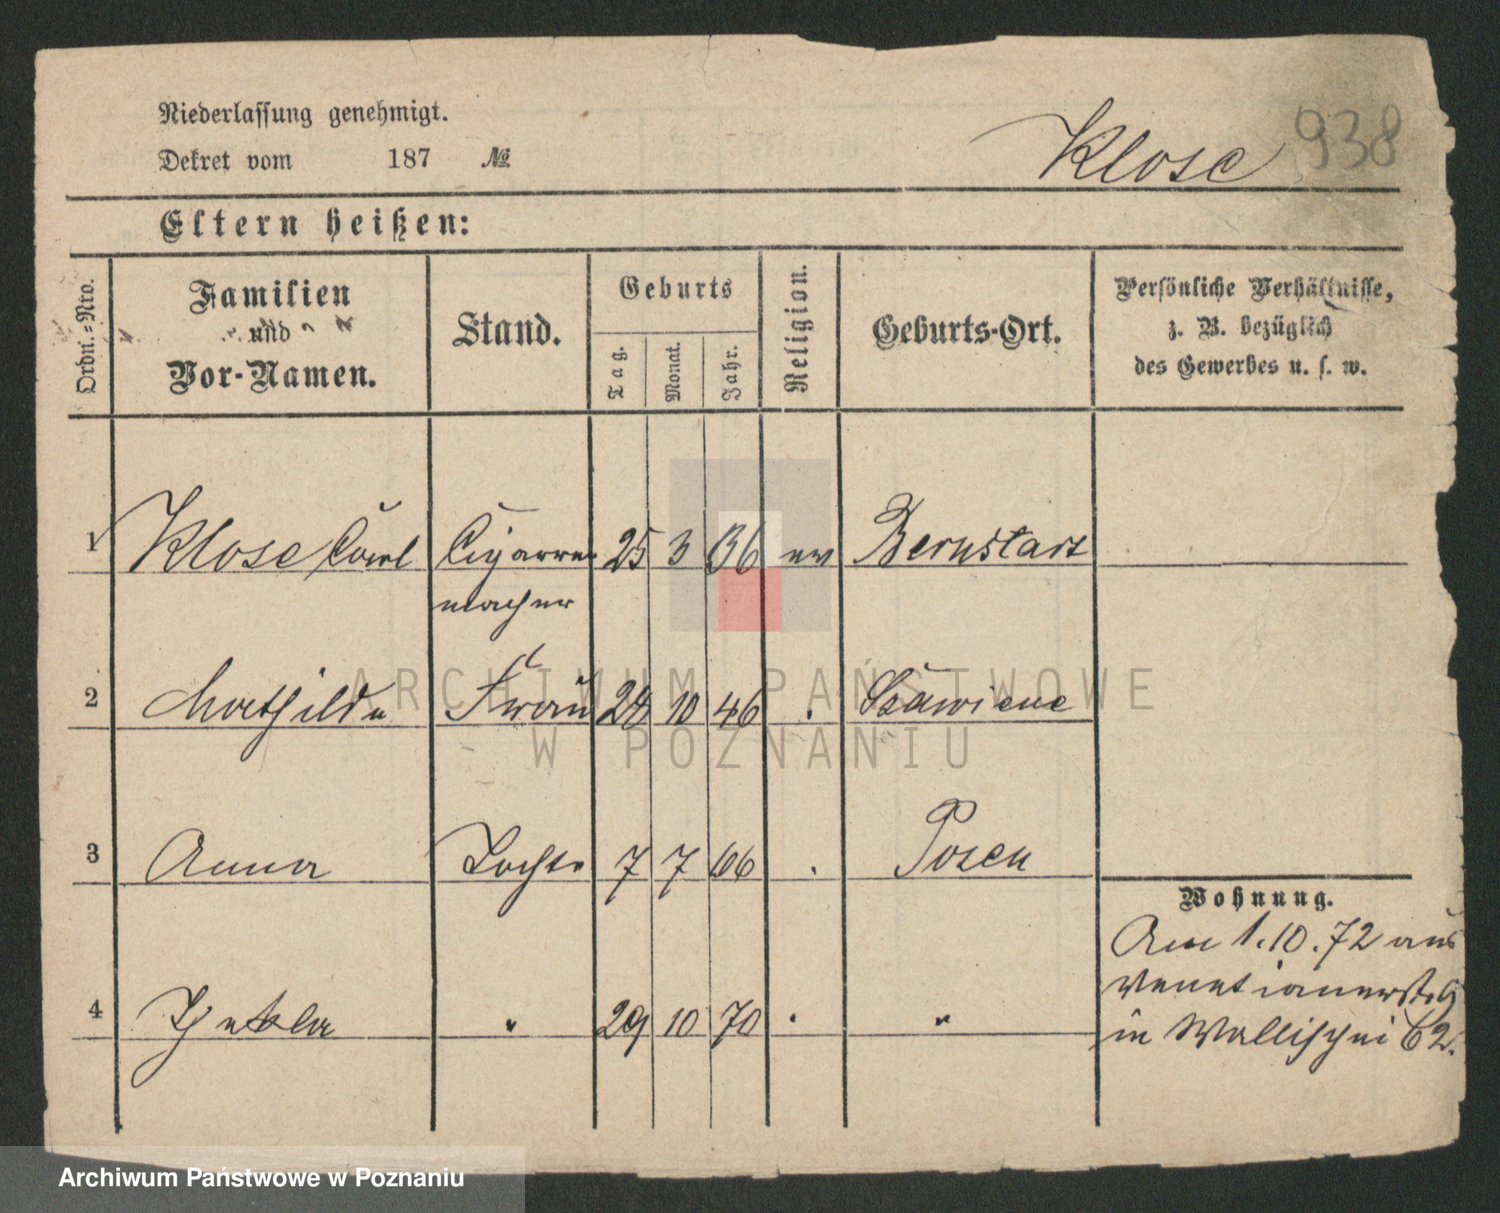 Niederlassung genehmigt.
Dekret vom 187 №
Klose 938
Eltern heißen:
Ordn.=Nro.
Familien
und
Vor-Namen.
Stand.
Geburts
Tag.
Monat.
Jahr.
Religion.
Geburts-Ort.
Persönliche Verhältnisse,
z. B. bezüglich
des Gewerbes u. s. w.
1 Klose Carl Cigarren 25 3 36 ev Bernstadt
macher
2 Mathilde Frau 28 10 46 .
3 Anna Tochter 7 7 66 . Posen
Wohnung.
Am 1.10.72 aus
Venetianerstr. 9
4 Thekla " 29 10 70 . "
in Wallischei 62.
ARCHIWUM PAŃSTWOWE
W POZNANIU
Archiwum Państwowe w Poznaniu